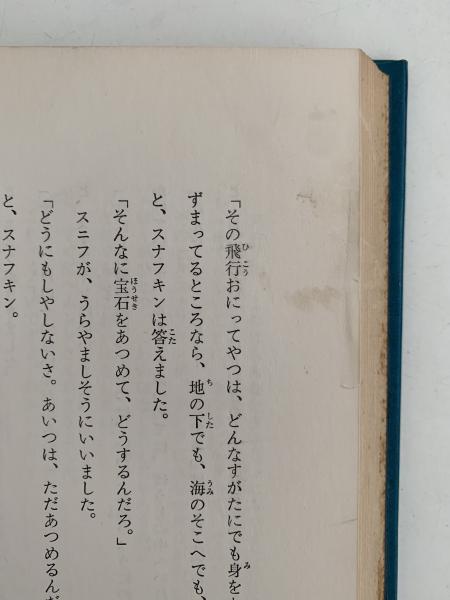 「その飛行おにってやつは、どんなすがたにでも身を
ずまってるところなら、地の下でも、海のそこへでも、
と、スナフキンは答えました。
「そんなに宝石をあつめて、どうするんだろ。」
スニフが、うらやましそうにいいました。
「どうにもしやしないさ。あいつは、ただあつめるんだ
と、スナフキン。